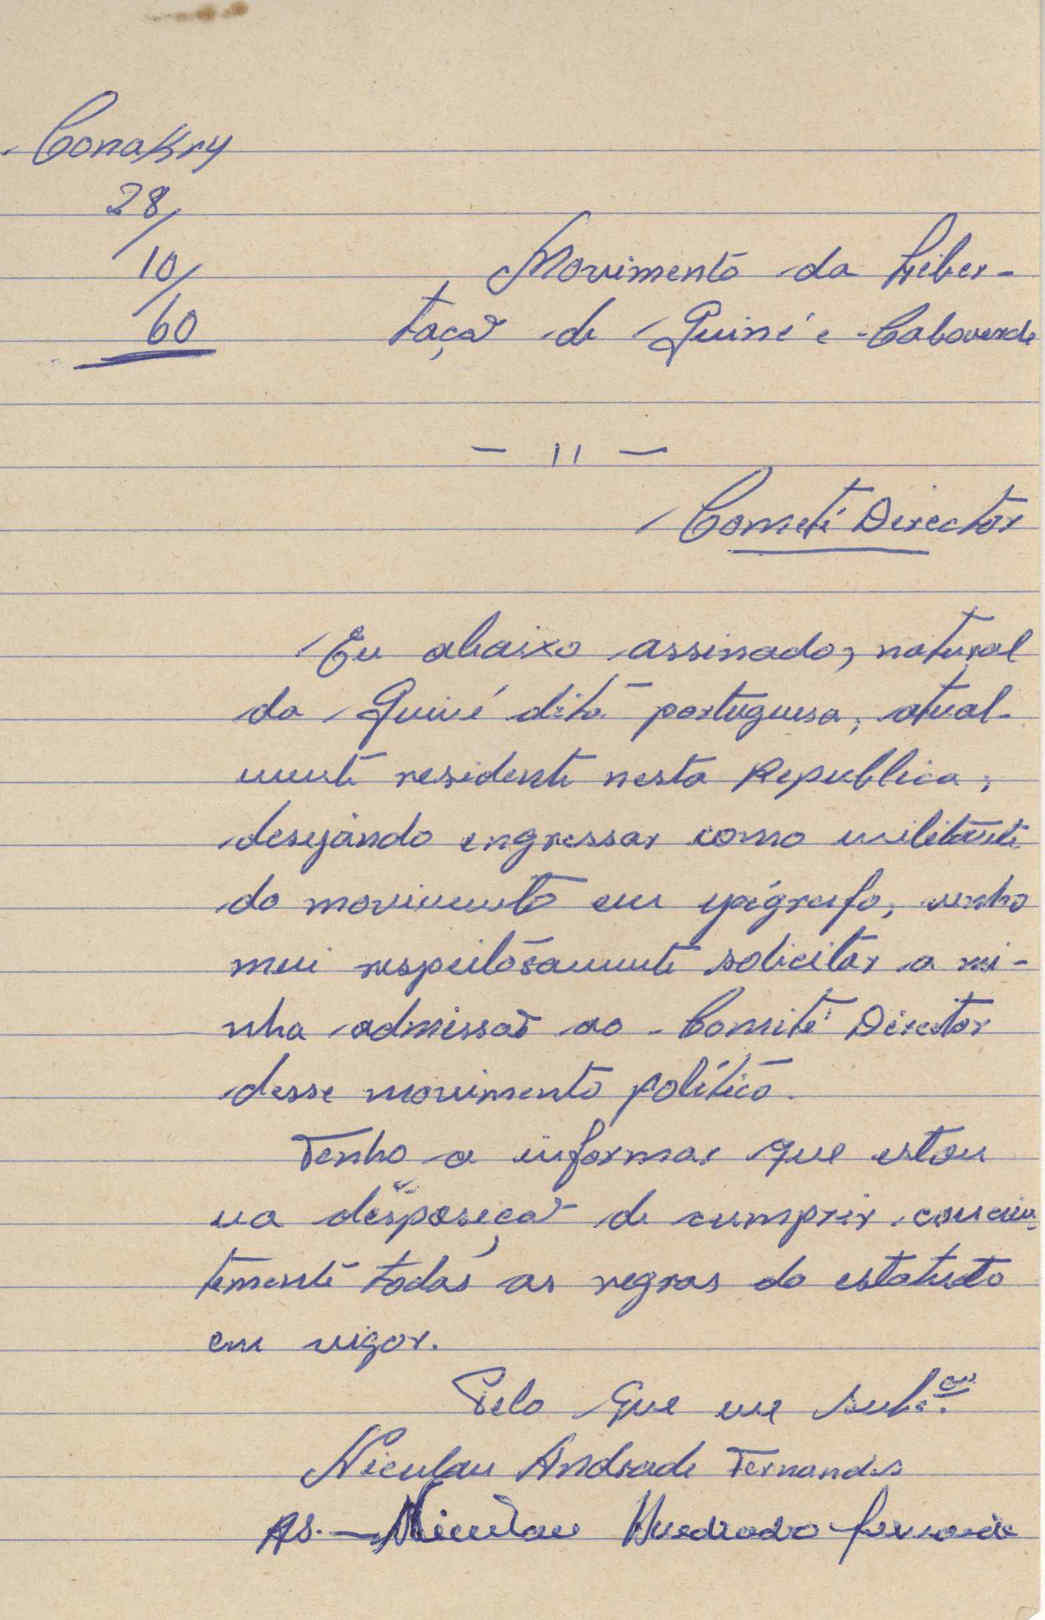 Conakry
28/
10/
60
Movimento da Liber-
taçaõ de Guiné e Caboverde
- 11 -
Cometé Director
Eu abaixo assinado, natural
da Guiné dita portuguesa, atual-
mente residente nesta Republica,
desejando engressar como militante
do movimento em epígrafo, venho
mui respeitosamente solicitar a mi-
nha admissaõ ao Comité Director
desse movimento político.
Tenho a informar que estou
na desposeçaõ de cumprir concien-
temente todas as regras do estatuto
em vigor.
Pelo que me
Niculau Andrade Fernandes
As. - Niculau